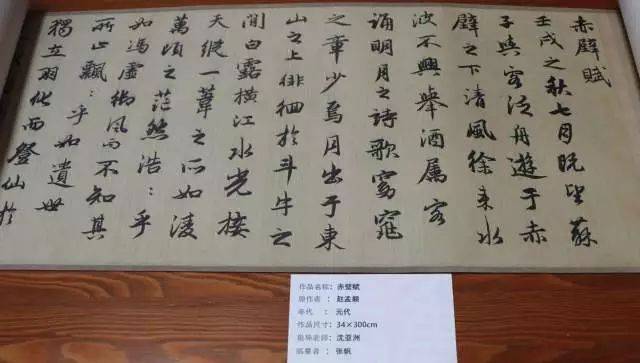 赤壁賦
壬戌之秋七月既望蘇
子與客泛舟遊于赤
壁之下清風徐来水
波不興舉酒属客
誦明月之詩歌窈窕
之章少焉月出于東
山之上徘徊於斗牛之
間白露横江水光接
天縱一葦之所如凌
萬頃之茫然浩〻乎
如馮虛御風而不知其
所止飄〻乎如遺世
獨立羽化而登仙於
作品名称：赤壁赋
原作者：赵孟頫
年代：元代
作品尺寸：34×300cm
指导老师：沈亚洲
临摹者：张帆